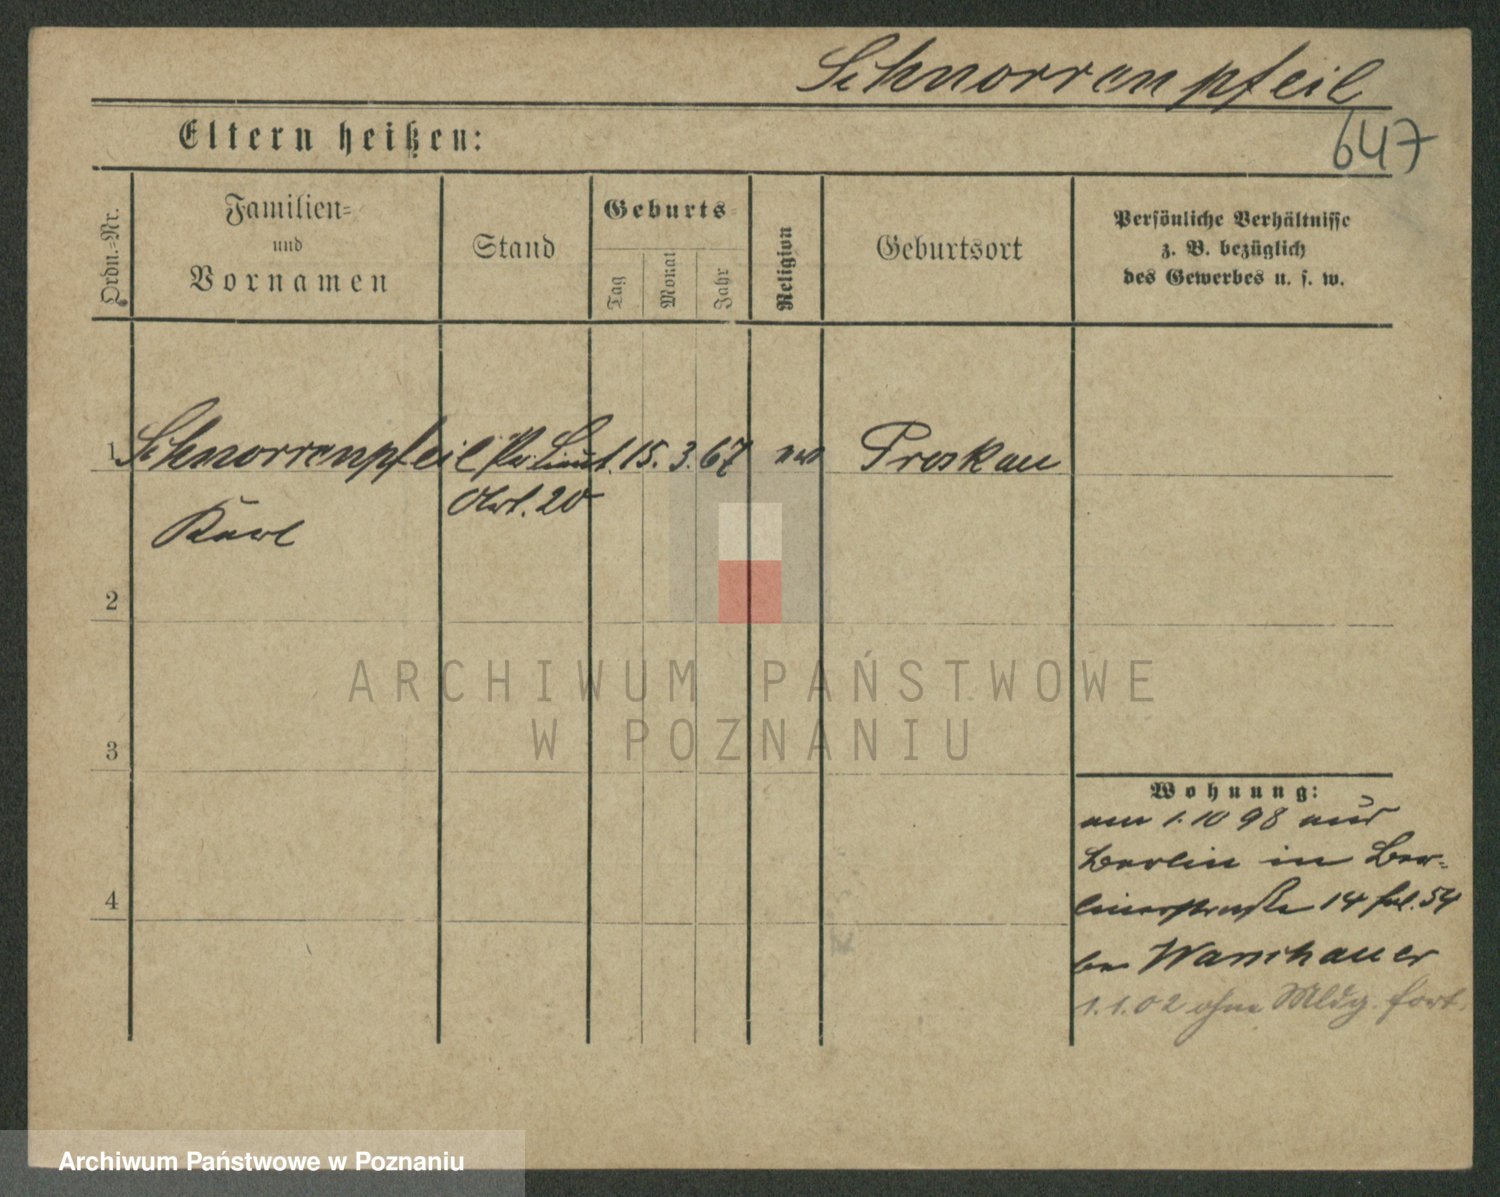 Schnorrenpfeil
Eltern heißen:
647
Ordn.=Nr.
Familien=
und
Vornamen
Stand
Geburts=
Tag
Monat
Jahr
Religion
Geburtsort
Persönliche Verhältnisse
z. B. bezüglich
des Gewerbes u. s. w.
1 Schnorrenpfeil Pr. Lieut. 15. 3. 67 ev Proskau
20
Karl
2
3
4
Wohnung:
am 1.10 98 aus
Berlin in Ber=
linerstraße 14 fol. 54
bei Warschauer
1.1.02 ohne Mldg. fort.
ARCHIWUM PAŃSTWOWE
W POZNANIU
Archiwum Państwowe w Poznaniu